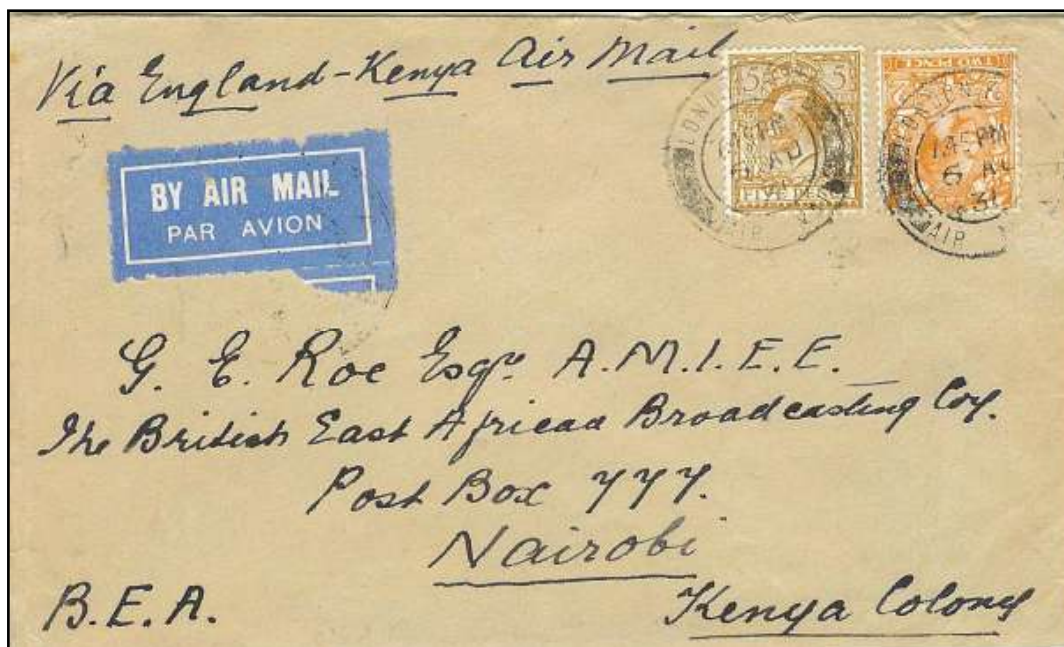 Via England-Kenya Air Mail
BY AIR MAIL
PAR AVION
5 5
FIVE PENCE
TWO PENCE
LONDON
AIR
LONDON
1.45 PM
6 AU
31
AIR
G. E. Roe Esqr. A.M.I.E.E.
The British East African Broadcasting Coy.
Post Box 777.
Nairobi
B.E.A. Kenya Colony